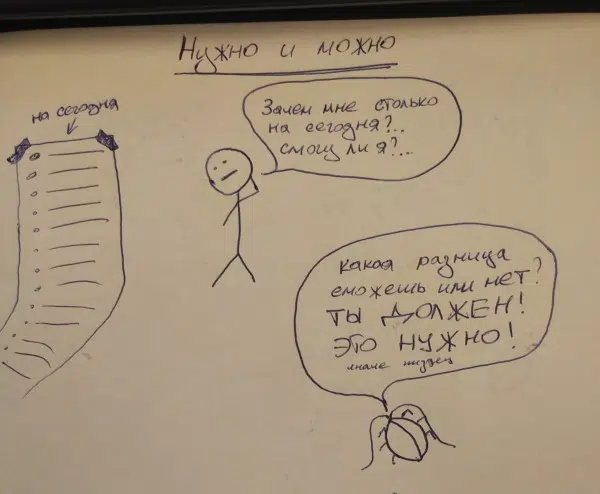 Нужно и можно
на сегодня
Зачем мне столько
на сегодня?...
смогу ли я?...
какая разница
сможешь или нет?
ТЫ ДОЛЖЕН!
ЭТО НУЖНО!
иначе пиздец